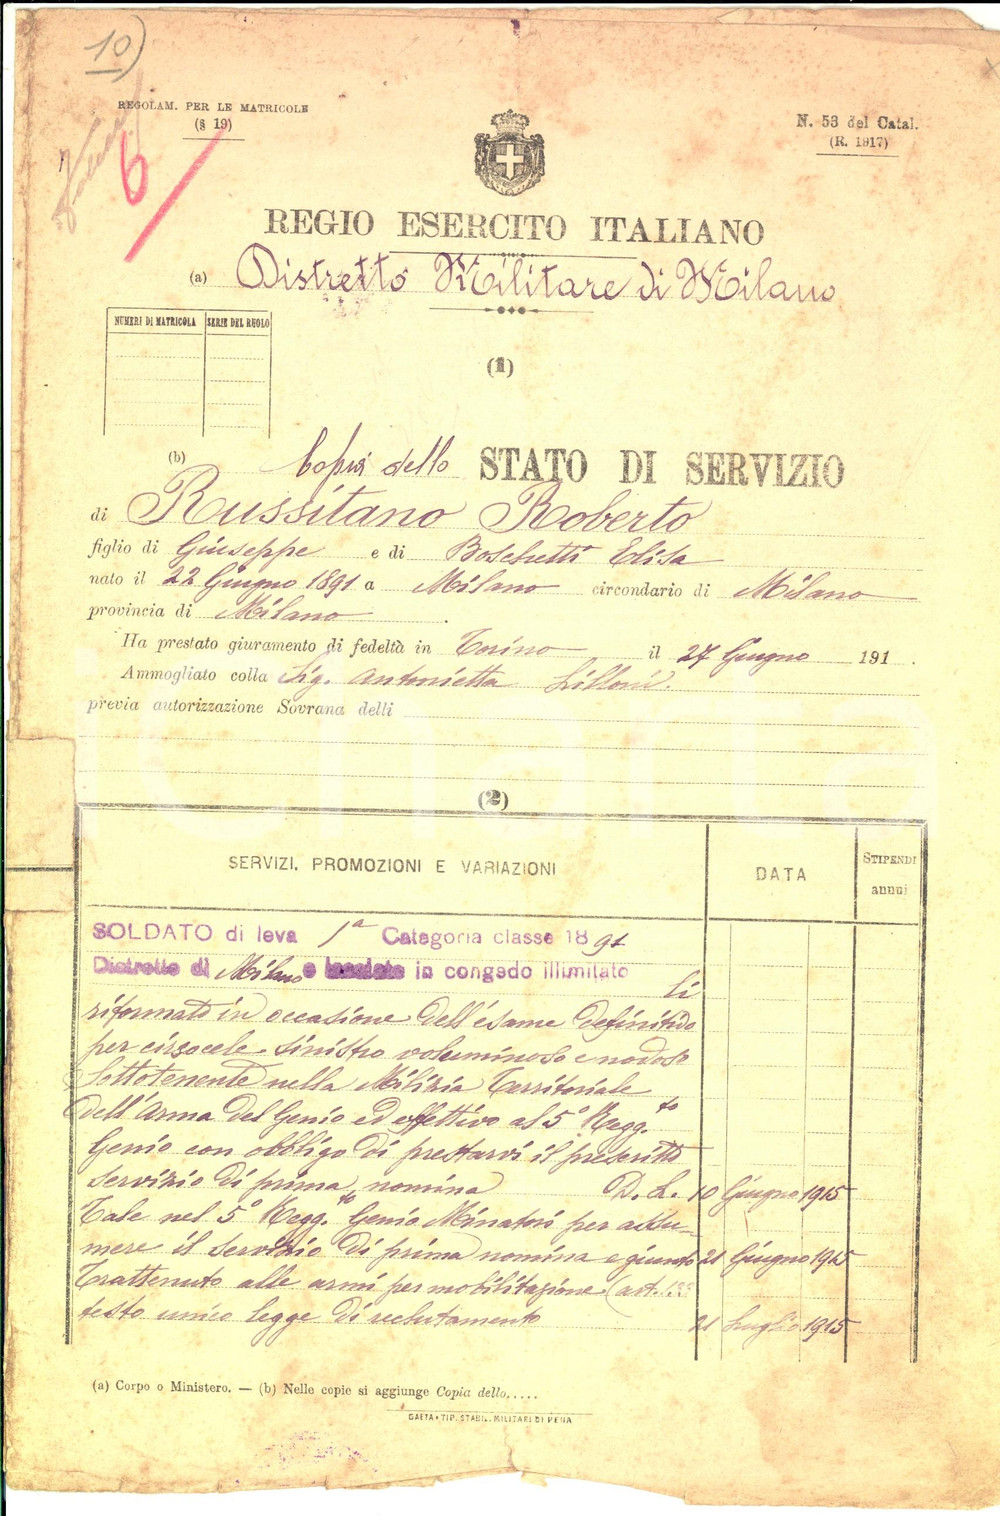 10)
REGOLAM. PER LE MATRICOLE
(§ 19)
6
N. 53 del Catal.
(R. 1917)
REGIO ESERCITO ITALIANO
(a) Distretto Militare di Milano
NUMERI DI MATRICOLA SERIE DEL RUOLO
(1)
(b) Copia dello STATO DI SERVIZIO
di Russitano Roberto
figlio di Giuseppe e di Boschetti Elisa
nato il 22 Giugno 1891 a Milano circondario di Milano
provincia di Milano.
Ha prestato giuramento di fedeltà in Torino il 27 Giugno 191 .
Ammogliato colla Sig. Antonietta
previa autorizzazione Sovrana delli
(2)
SERVIZI, PROMOZIONI E VARIAZIONI DATA STIPENDI annui
SOLDATO di leva 1a Categoria classe 1891
Distretto di Milano e lasciato in congedo illimitato li
riformato in occasione dell'esame definitivo
per cirsocele sinistro voluminoso e nodoso
Sottotenente nella Milizia Territoriale
dell'Arma del Genio ed effettivo al 5° Regg.to
Genio con obbligo di prestarvi il prescritto
servizio di prima nomina D. L. 10 Giugno 1915
Tale nel 5° Regg.to Genio Minatori per assu-
mere il servizio di prima nomina e giunto 21 Giugno 1915
Trattenuto alle armi per mobilitazione (art.
testo unico legge di reclutamento 21 Luglio 1915
(a) Corpo o Ministero. — (b) Nelle copie si aggiunge Copia dello.....
GAETA - TIP. STABIL. MILITARI DI PENA